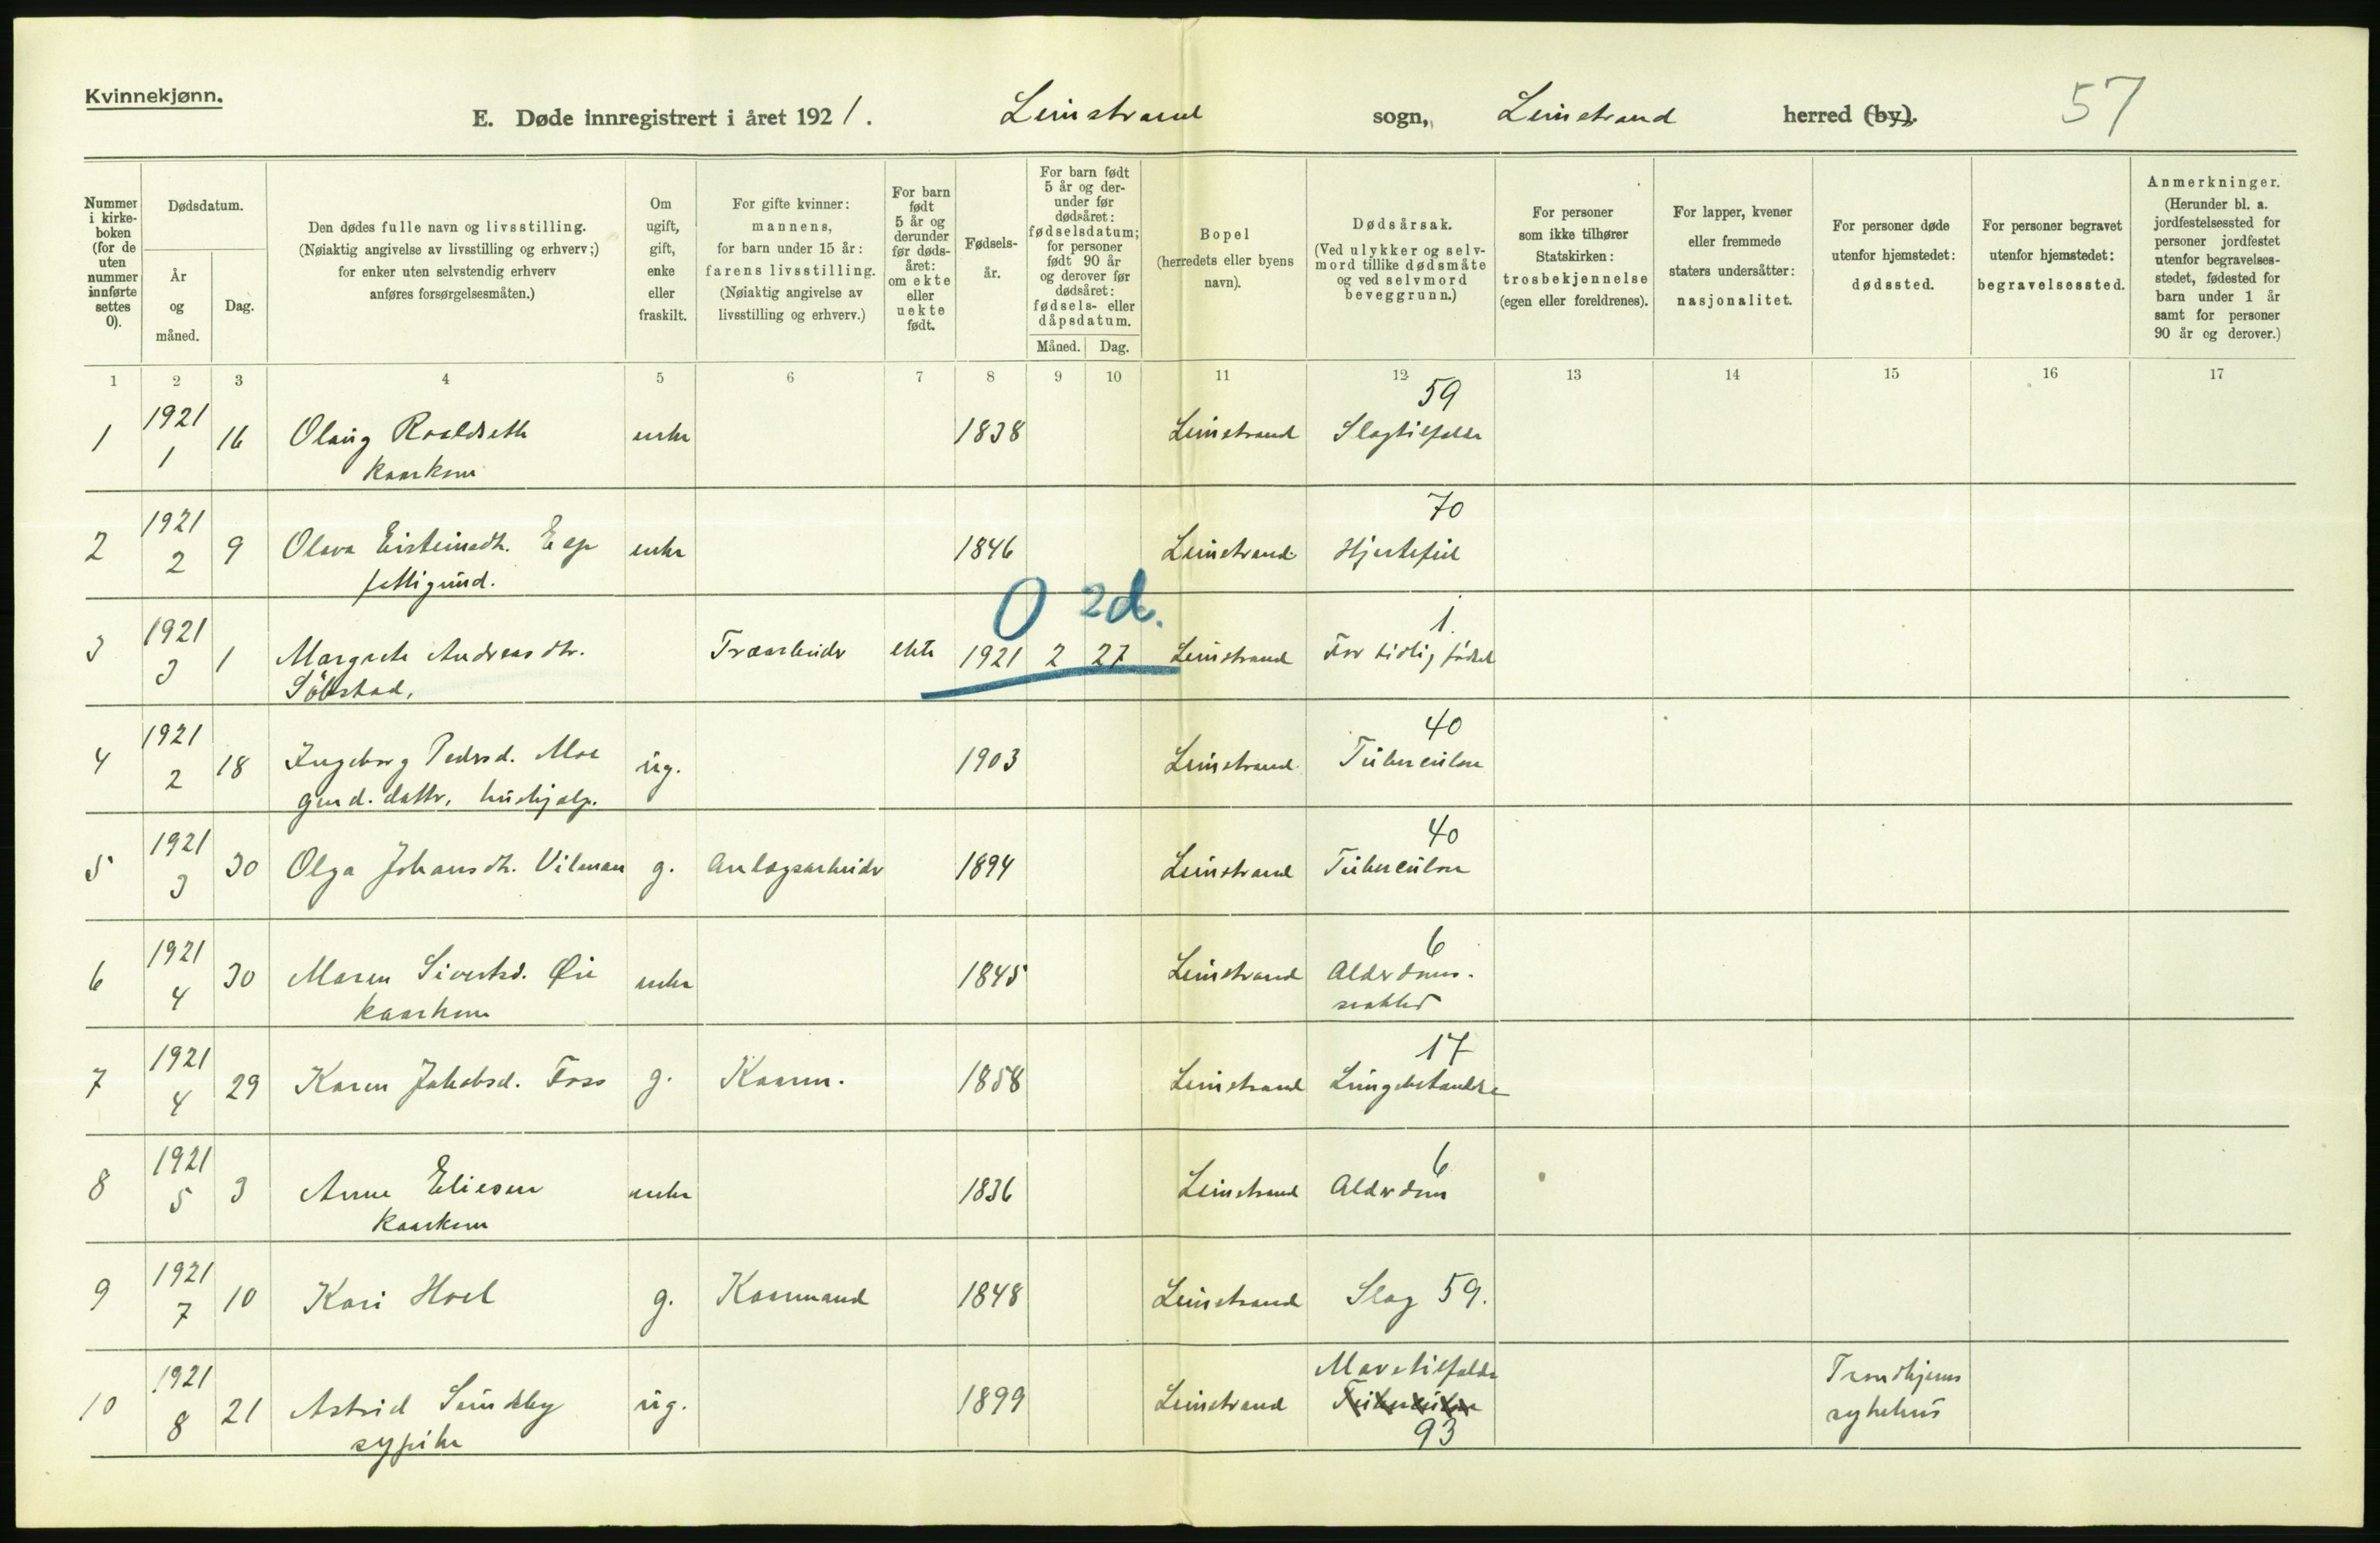 Kvinnekjønn.
E. Døde innregistrert i året 1921. Leinstrand sogn, Leinstrand herred (by). 57
Nummer i kirke-boken (for de uten nummer innførte settes 0).
Dødsdatum.
År og måned.
Dag.
Den dødes fulle navn og livsstilling.
(Nøiaktig angivelse av livsstilling og erhverv;)
for enker uten selvstendig erhverv
anføres forsørgelsesmåten.)
Om ugift, gift, enke eller fraskilt.
For gifte kvinner:
mannens,
for barn under 15 år:
farens livsstilling.
(Nøiaktig angivelse av
livsstilling og erhverv.)
For barn født 5 år og derunder før døds-året: om ekte eller uekte født.
Fødsels-år.
For barn født 5 år og der-under før dødsåret: fødselsdatum; for personer født 90 år og derover før dødsåret: fødsels- eller dåpsdatum.
Måned. Dag.
Bopel
(herredets eller byens
navn).
Dødsårsak.
(Ved ulykker og selv-
mord tillike dødsmåte
og ved selvmord
beveggrunn.)
For personer
som ikke tilhører
Statskirken:
trosbekjennelse
(egen eller foreldrenes).
For lapper, kvener
eller fremmede
staters undersåtter:
nasjonalitet.
For personer døde
utenfor hjemstedet:
dødssted.
For personer begravet
utenfor hjemstedet:
begravelsessted.
Anmerkninger.
(Herunder bl. a.
jordfestelsessted for
personer jordfestet
utenfor begravelses-
stedet, fødested for
barn under 1 år
samt for personer
90 år og derover.)
1 2 3 4 5 6 7 8 9 10 11 12 13 14 15 16 17
1921 59
1 1 16 Olaug Roaldseth enke 1838 Leinstrand Slagtilfelde
kaarkone
1921 70
2 2 9 Olava Eisteinsdt. Esp enke 1846 Leinstrand Hjertefeil
fattigund.
0 2d.
1921 1.
3 3 1 Margrete Andreasdtr. Træarbeider ekte 1921 2 27 Leinstrand For tidlig født
Sölstad.
1921 40
4 2 18 Ingeborg Pedersd. Moe ug. 1903 Leinstrand Tuberculose
gmd. datter, hushjælp.
1921 40
5 3 30 Olga Johansdt. Vilman g. Anlægsarbeider 1894 Leinstrand Tuberculose
1921 6
6 4 30 Maren Sivertsd. Øie enke 1845 Leinstrand Alderdoms-
kaarkone svakhed
1921 17
7 4 29 Karen Jakobsd. Foss g. Kaarm. 1858 Leinstrand Lungebetændelse
1921 6
8 5 3 Anne Eliesen enke 1836 Leinstrand Alderdom
kaarkone
1921
9 7 10 Kari Hoel g. Kaarmand 1848 Leinstrand Slag 59.
1921 Mavetilfælde Trondhjems
10 8 21 Astrid Sundby ug. 1899 Leinstrand Tuberculose sykehus
sypike 93